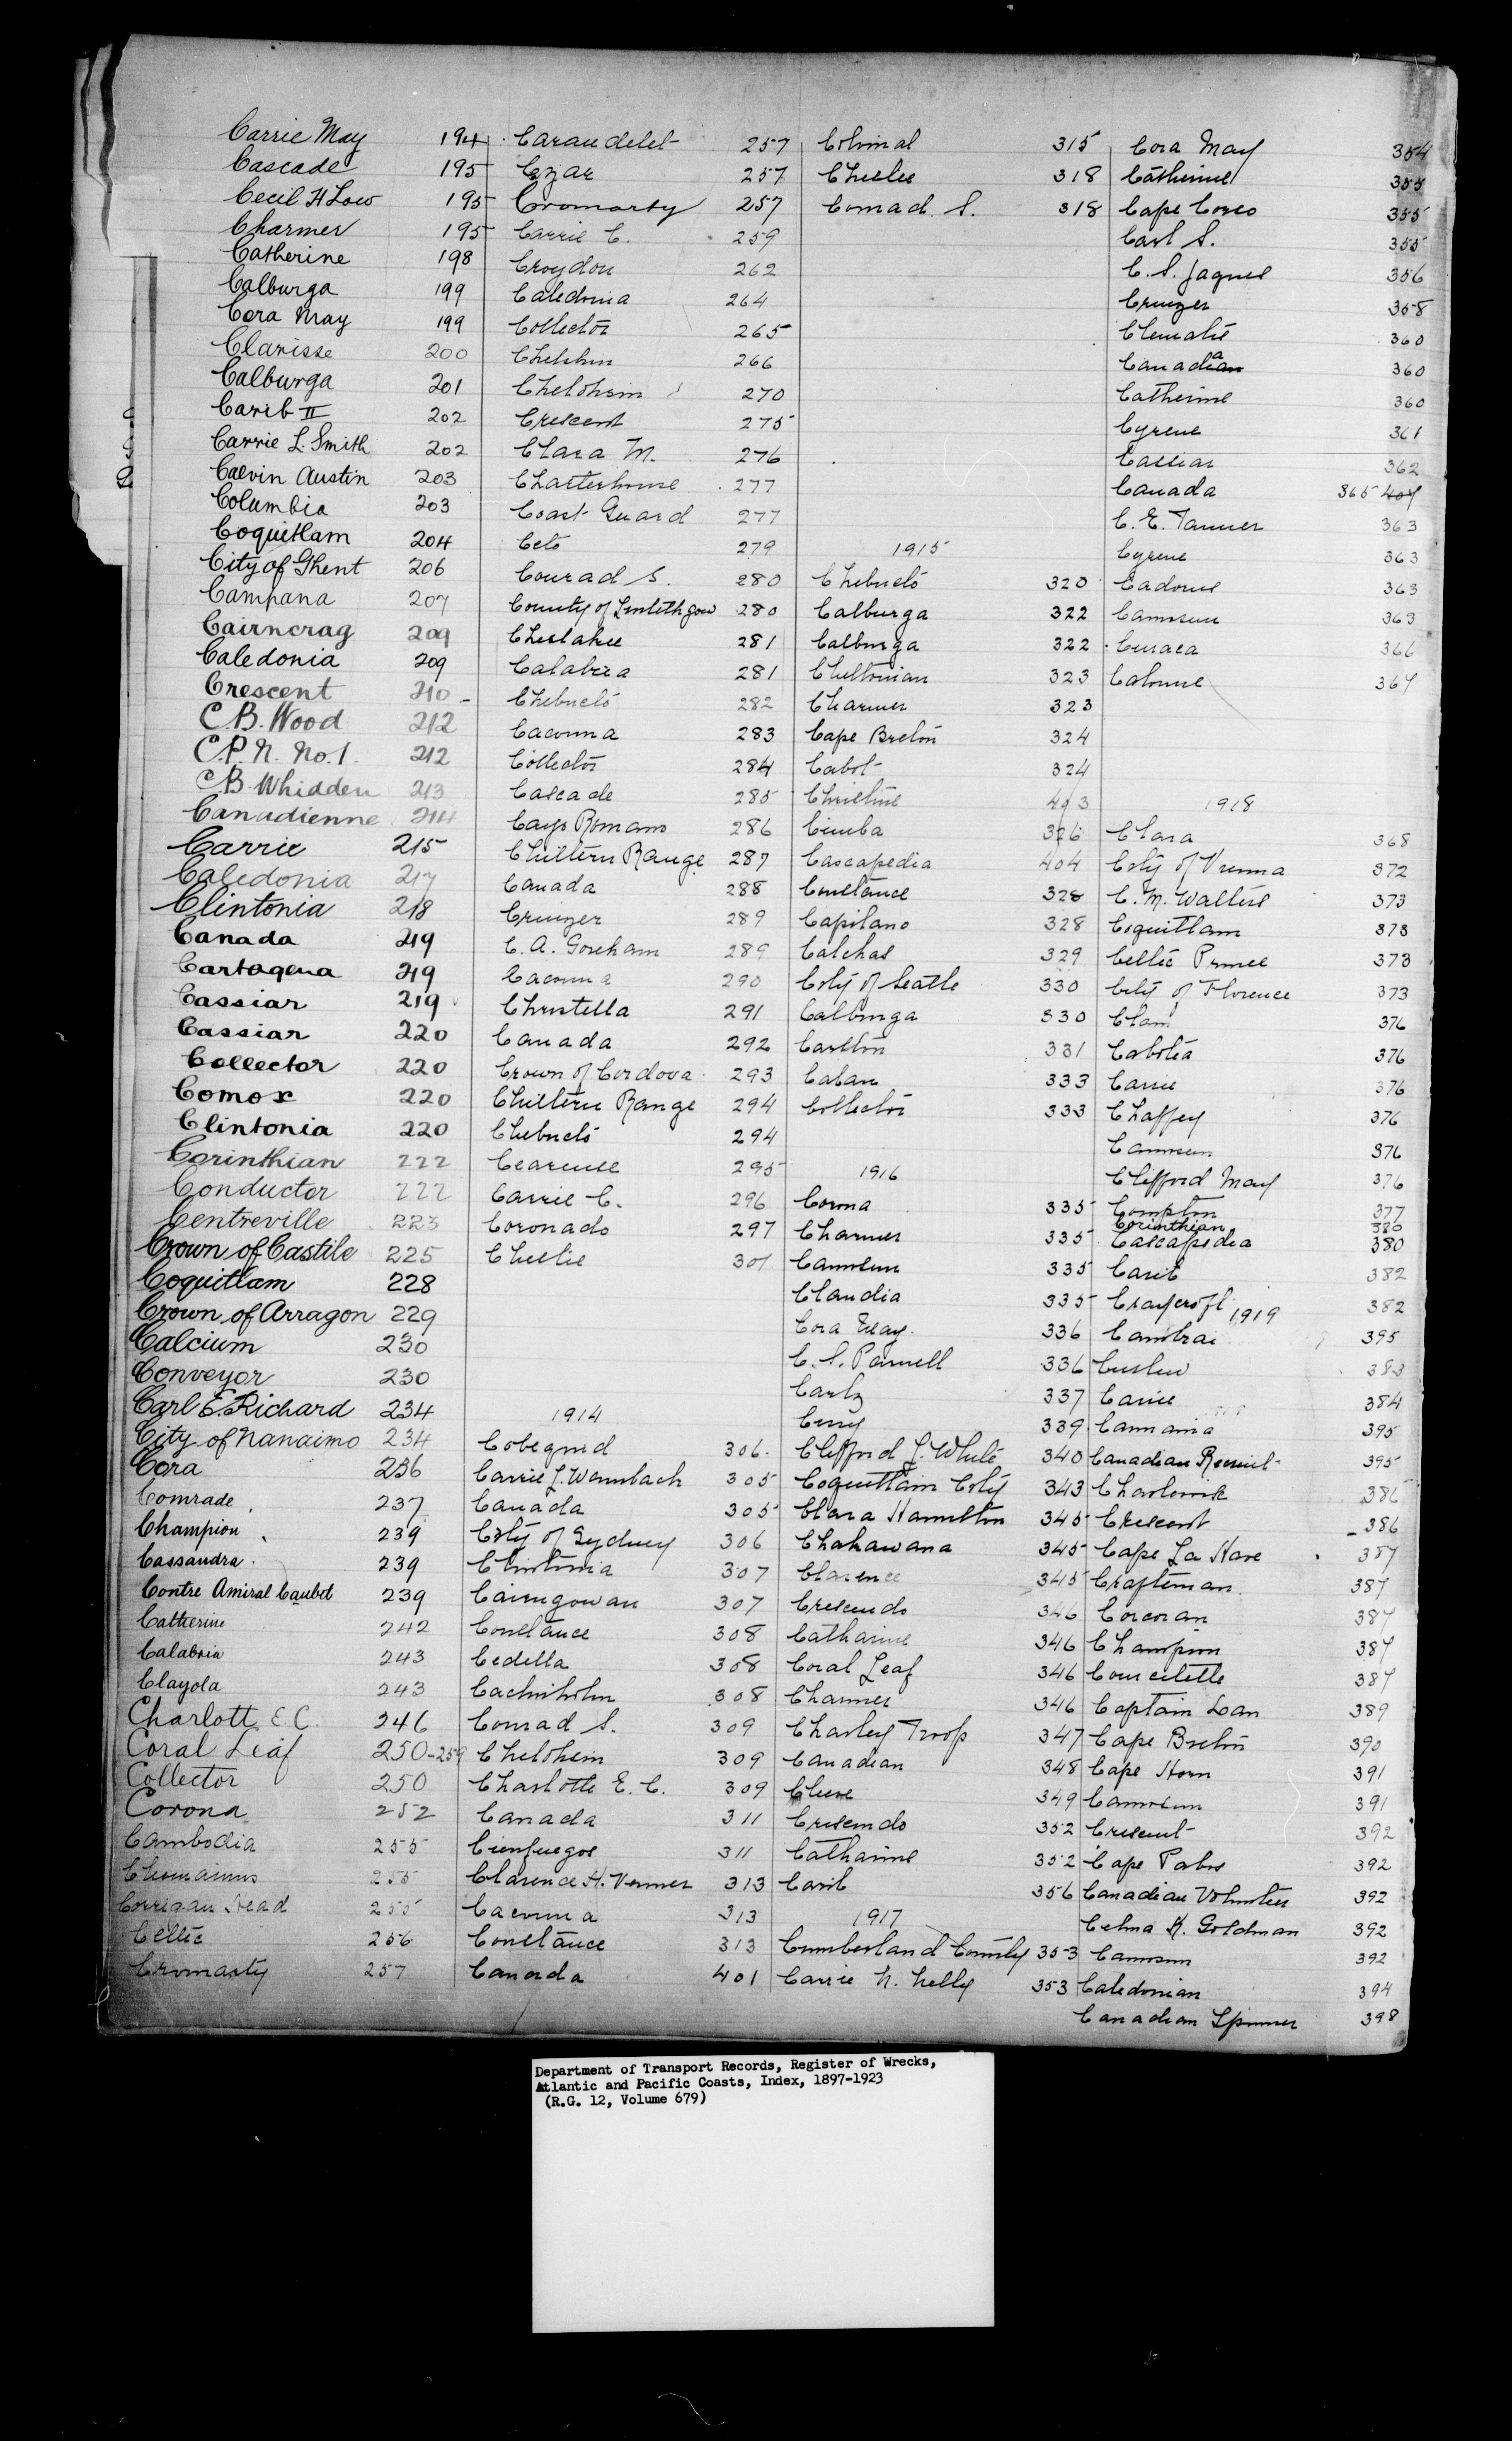 Carrie May 194
Cascade 195
Cecil H Low 195
Charmer 195
Catherine 198
Calburga 199
Cora May 199
Clarisse 200
Calburga 201
Carib II 202
Carrie L. Smith 202
Calvin Austin 203
Columbia 203
Coquitlam 204
City of Ghent 206
Campana 207
Cairncrag 209
Caledonia 209
Crescent 210
C.B. Wood 212
C.P.N. No. 1. 212
C.B. Whidden 213
Canadienne 214
Carrie 215
Caledonia 217
Clintonia 218
Canada 219
Cartagena 219
Cassiar 219
Cassiar 220
Collector 220
Comox 220
Clintonia 220
Corinthian 222
Conductor 222
Centreville 223
Crown of Castile 225
Coquitlam 228
Crown of Arragon 229
Calcium 230
Conveyor 230
Carl E. Richard 234
City of Nanaimo 234
Cora 236
Comrade 237
Champion 239
Cassandra 239
Contre Amiral Caubet 239
Catherine 242
Calabria 243
Clayola 243
Charlott E.C. 246
Coral Leaf 250-259
Collector 250
Corona 252
Cambodia 255
Chemainus 255
Corrigan Head 255
Celtic 256
Cromarty 257
Carandelet 257
Czar 257
Cromarty 257
Carrie C. 259
Croydon 262
Caledonia 264
Collector 265
266
Chelohsin 270
Crescent 275
Clara M. 276
Charterhouse 277
Coast Guard 277
Ceto 279
Conrad S. 280
County of Linlithgow 280
Cheslakee 281
Calabria 281
Chebucto 282
Cacouna 283
Collector 284
Cascade 285
Cayo Romano 286
Chiltern Range 287
Canada 288
Cruizer 289
C. A. Goreham 289
Cacouna 290
Christella 291
Canada 292
Crown of Cordova 293
Chiltern Range 294
Chebucto 294
295
Carrie C. 296
Coronado 297
Chellie 301
1914
Cobequid 306
Carrie L. Wambach 305
Canada 305
City of Sydney 306
Clintonia 307
Cairngowan 307
Constance 308
Cedella 308
308
Conrad S. 309
Chelohsin 309
Charlotte E. C. 309
Canada 311
Cienfuegos 311
Clarence H. Venner 313
Cacouna 313
Constance 313
Canada 401
315
318
Conrad S. 318
1915
Chebucto 320
Calburga 322
Calburga 322
Cheltonian 323
Charmer 323
Cape Breton 324
Cabot 324
Christine 403
Cimba 326
Cascapedia 404
Constance 328
Capilano 328
Calchas 329
City of Seatle 330
Calburga 330
Carlton 331
Caban 333
Collector 333
1916
Corma 335
Charmer 335
Camosun 335
Claudia 335
Cora May 336
C. S. Parnell 336
337
339
Clifford L. White 340
Coquitlam City 343
Clara Hamilton 345
Chakawana 345
Clarence 345
Crescendo 346
Catharine 346
Coral Leaf 346
Charmer 346
Charley Troop 347
Canadian 348
349
Crescendo 352
Catharine 352
Carib 356
1917
Cumberland County 353
Carrie N. 353
Cora May 354
Catherine 355
Cape Corso 355
Carl S. 355
C. S. Jaques 356
Cruizer 358
Clematis 360
Canada 360
Catherine 360
Cyrene 361
Cassiar 362
Canada 365
C. E. Tanner 363
Cyrene 363
Cadorna 363
Camosun 363
Curaca 366
Calonne 367
1918
Clara 368
City of Vienna 372
C. M. Walters 373
Coquitlam 373
Celtic Prince 373
City of Florence 373
Clam 376
Cabotia 376
Carrie 376
Chaffey 376
Camosun 376
Clifford May 376
Compton 377
Corinthian 380
Cascapedia 380
Carib 382
Craycroft 382
1919
Cambrai 395
383
Carrie 384
Carmania 395
Canadian Recruit 395
386
Crescent 386
Cape La Have 387
Craftsman 387
Corcoran 387
Champion 387
Courcelette 387
Captain Dan 389
Cape Breton 390
Cape Horn 391
Camosun 391
Crescent 392
Cape Pabos 392
Canadian Volunteer 392
Celina K. Goldman 392
Camosun 392
Caledonian 394
Canadian Spinner 398
Department of Transport Records, Register of Wrecks,
Atlantic and Pacific Coasts, Index, 1897-1923
(R.G. 12, Volume 679)